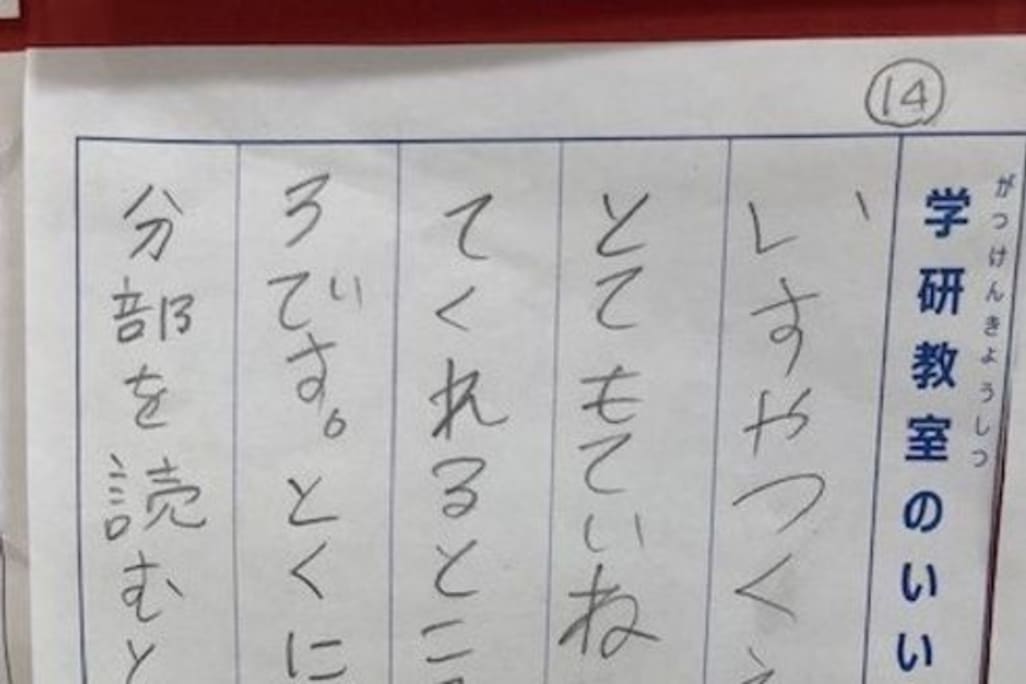 14
がつけんきょうしつ
学研教室のいい
いすやつく
とてもていね
てくれるとこ
ろです。とくに
分部を読むと